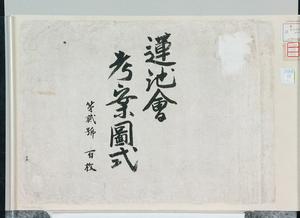 蓮池會
考案圖式
第貳號 百枚